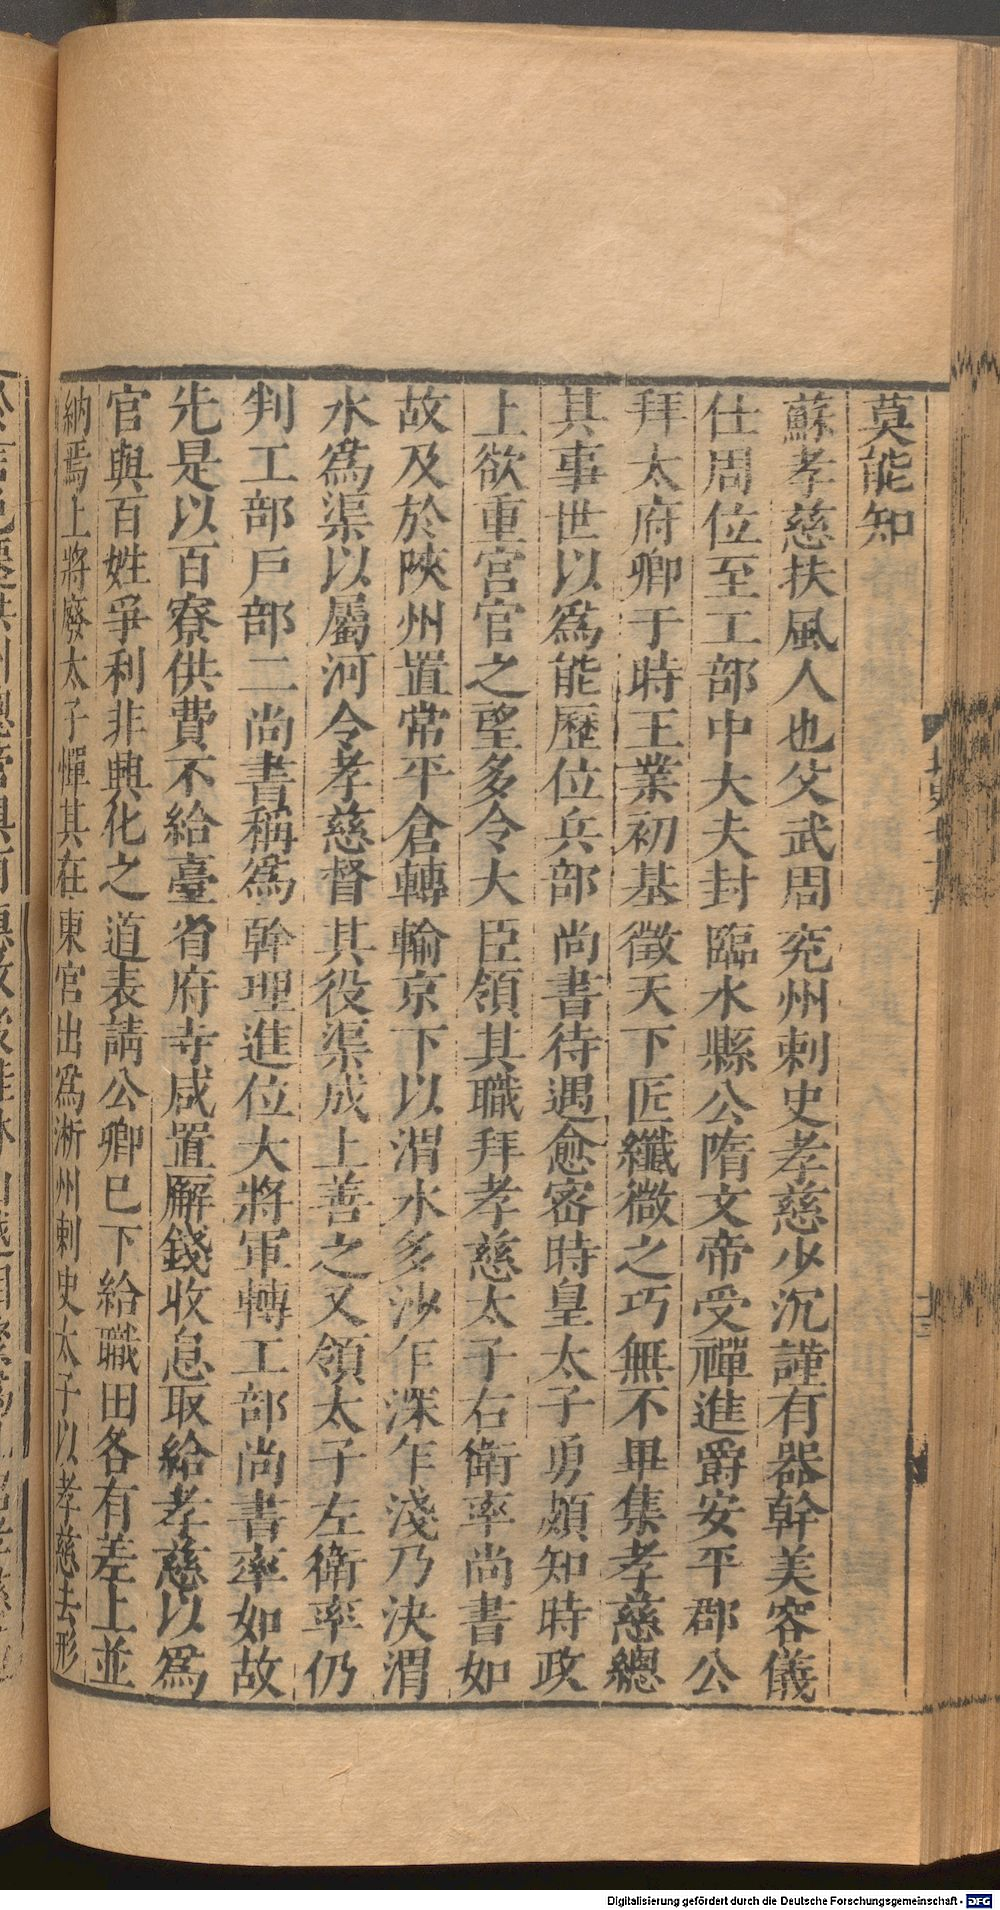 莫能知
蘇孝慈扶風人也父武周兖州刺史孝慈少沉謹有器幹美容儀
仕周位至工部中大夫封臨水縣公隋文帝受禪進爵安平郡公
拜太府卿于時王業初基徵天下匠纖微之巧無不畢集孝慈總
其事世以爲能歷位兵部尚書待遇愈密時皇太子勇頗知時政
上欲重宮官之望多令大臣領其職拜孝慈太子右衛率尚書如
故及於陝州置常平倉轉輸京下以渭水多沙乍深乍淺乃決渭
水爲渠以屬河令孝慈督其役渠成上善之又領太子左衛率仍
判工部戶部二尚書稱爲幹理進位大將軍轉工部尚書率如故
先是以百寮供費不給臺省府寺咸置廨錢收息取給孝慈以爲
官與百姓爭利非興化之道表請公卿巳下給職田各有差上並
納焉上將廢太子憚其在東官出爲淅州刺史太子以孝慈去形
Digitalisierung gefördert durch die Deutsche Forschungsgemeinschaft - DFG